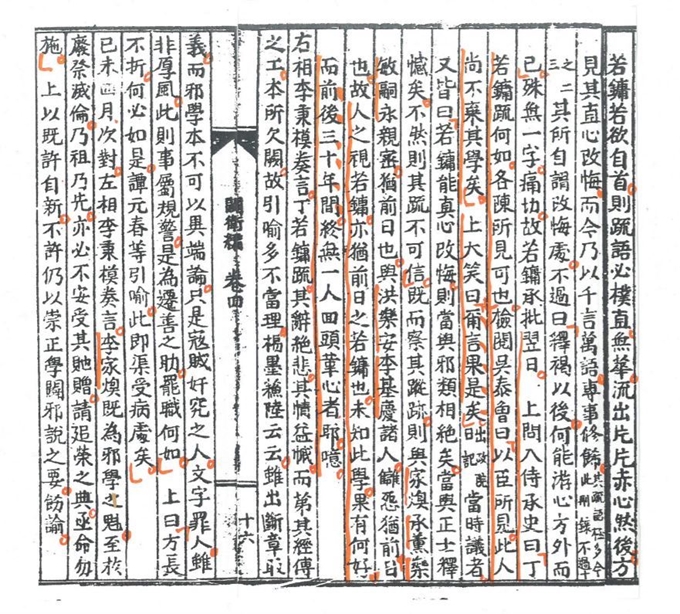 若鏞若欲自首則疏語必樸直無華流出片片赤心然後方
見其直心改悔而今乃以千言萬語專事修餙其疏語極多今此刪錄不過十
之二三其所自謂改悔處不過曰釋褐以後何能游心方外而
已殊無一字痛切故若鏞承批翌日 上問入侍承史曰丁
若鏞疏何如各陳所見可也檢閱吳泰曾曰以臣所見此人
尚不棄其學矣 上大笑曰爾言果是矣出政院日記當時議者
又皆曰若鏞能真心改悔則當與邪類相絕矣當與正士釋
憾矣不然則其疏不可信既而察其蹤跡則與家煥承薰樂
敏嗣永親密猶前日也與洪樂安李基慶諸人讎惡猶前日
也故人之視若鏞亦猶前日之若鏞也未知此學果有何好
而前後三十年間終無一人回頭革心者耶噫
右相李秉模奏言丁若鏞疏其辭絕悲其情益慽而第其經傳
之工本所欠闕故引喻多不當理楊墨濂陸云云雖出斷章取
闢衛編 卷四 十六
義而邪學本不可以異端論只是寇賊奸宄之人文字罪人雖
非厚風此則事屬規警是為遷善之助罷職何如 上曰方長
不折何必如是譚元春等引喻此即渠受病處矣
己未月次對左相李秉模奏言李家煥既為邪學之魁至於
廢祭滅倫乃祖乃先亦必不安受其貤贈請追榮之典亟命勿
施 上以既許自新不許仍以崇正學闢邪說之要飭諭